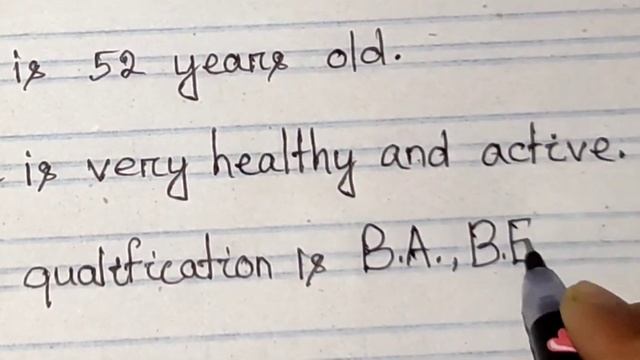 is 52 years old.
is very healthy and active.
qualification is B.A., B.E